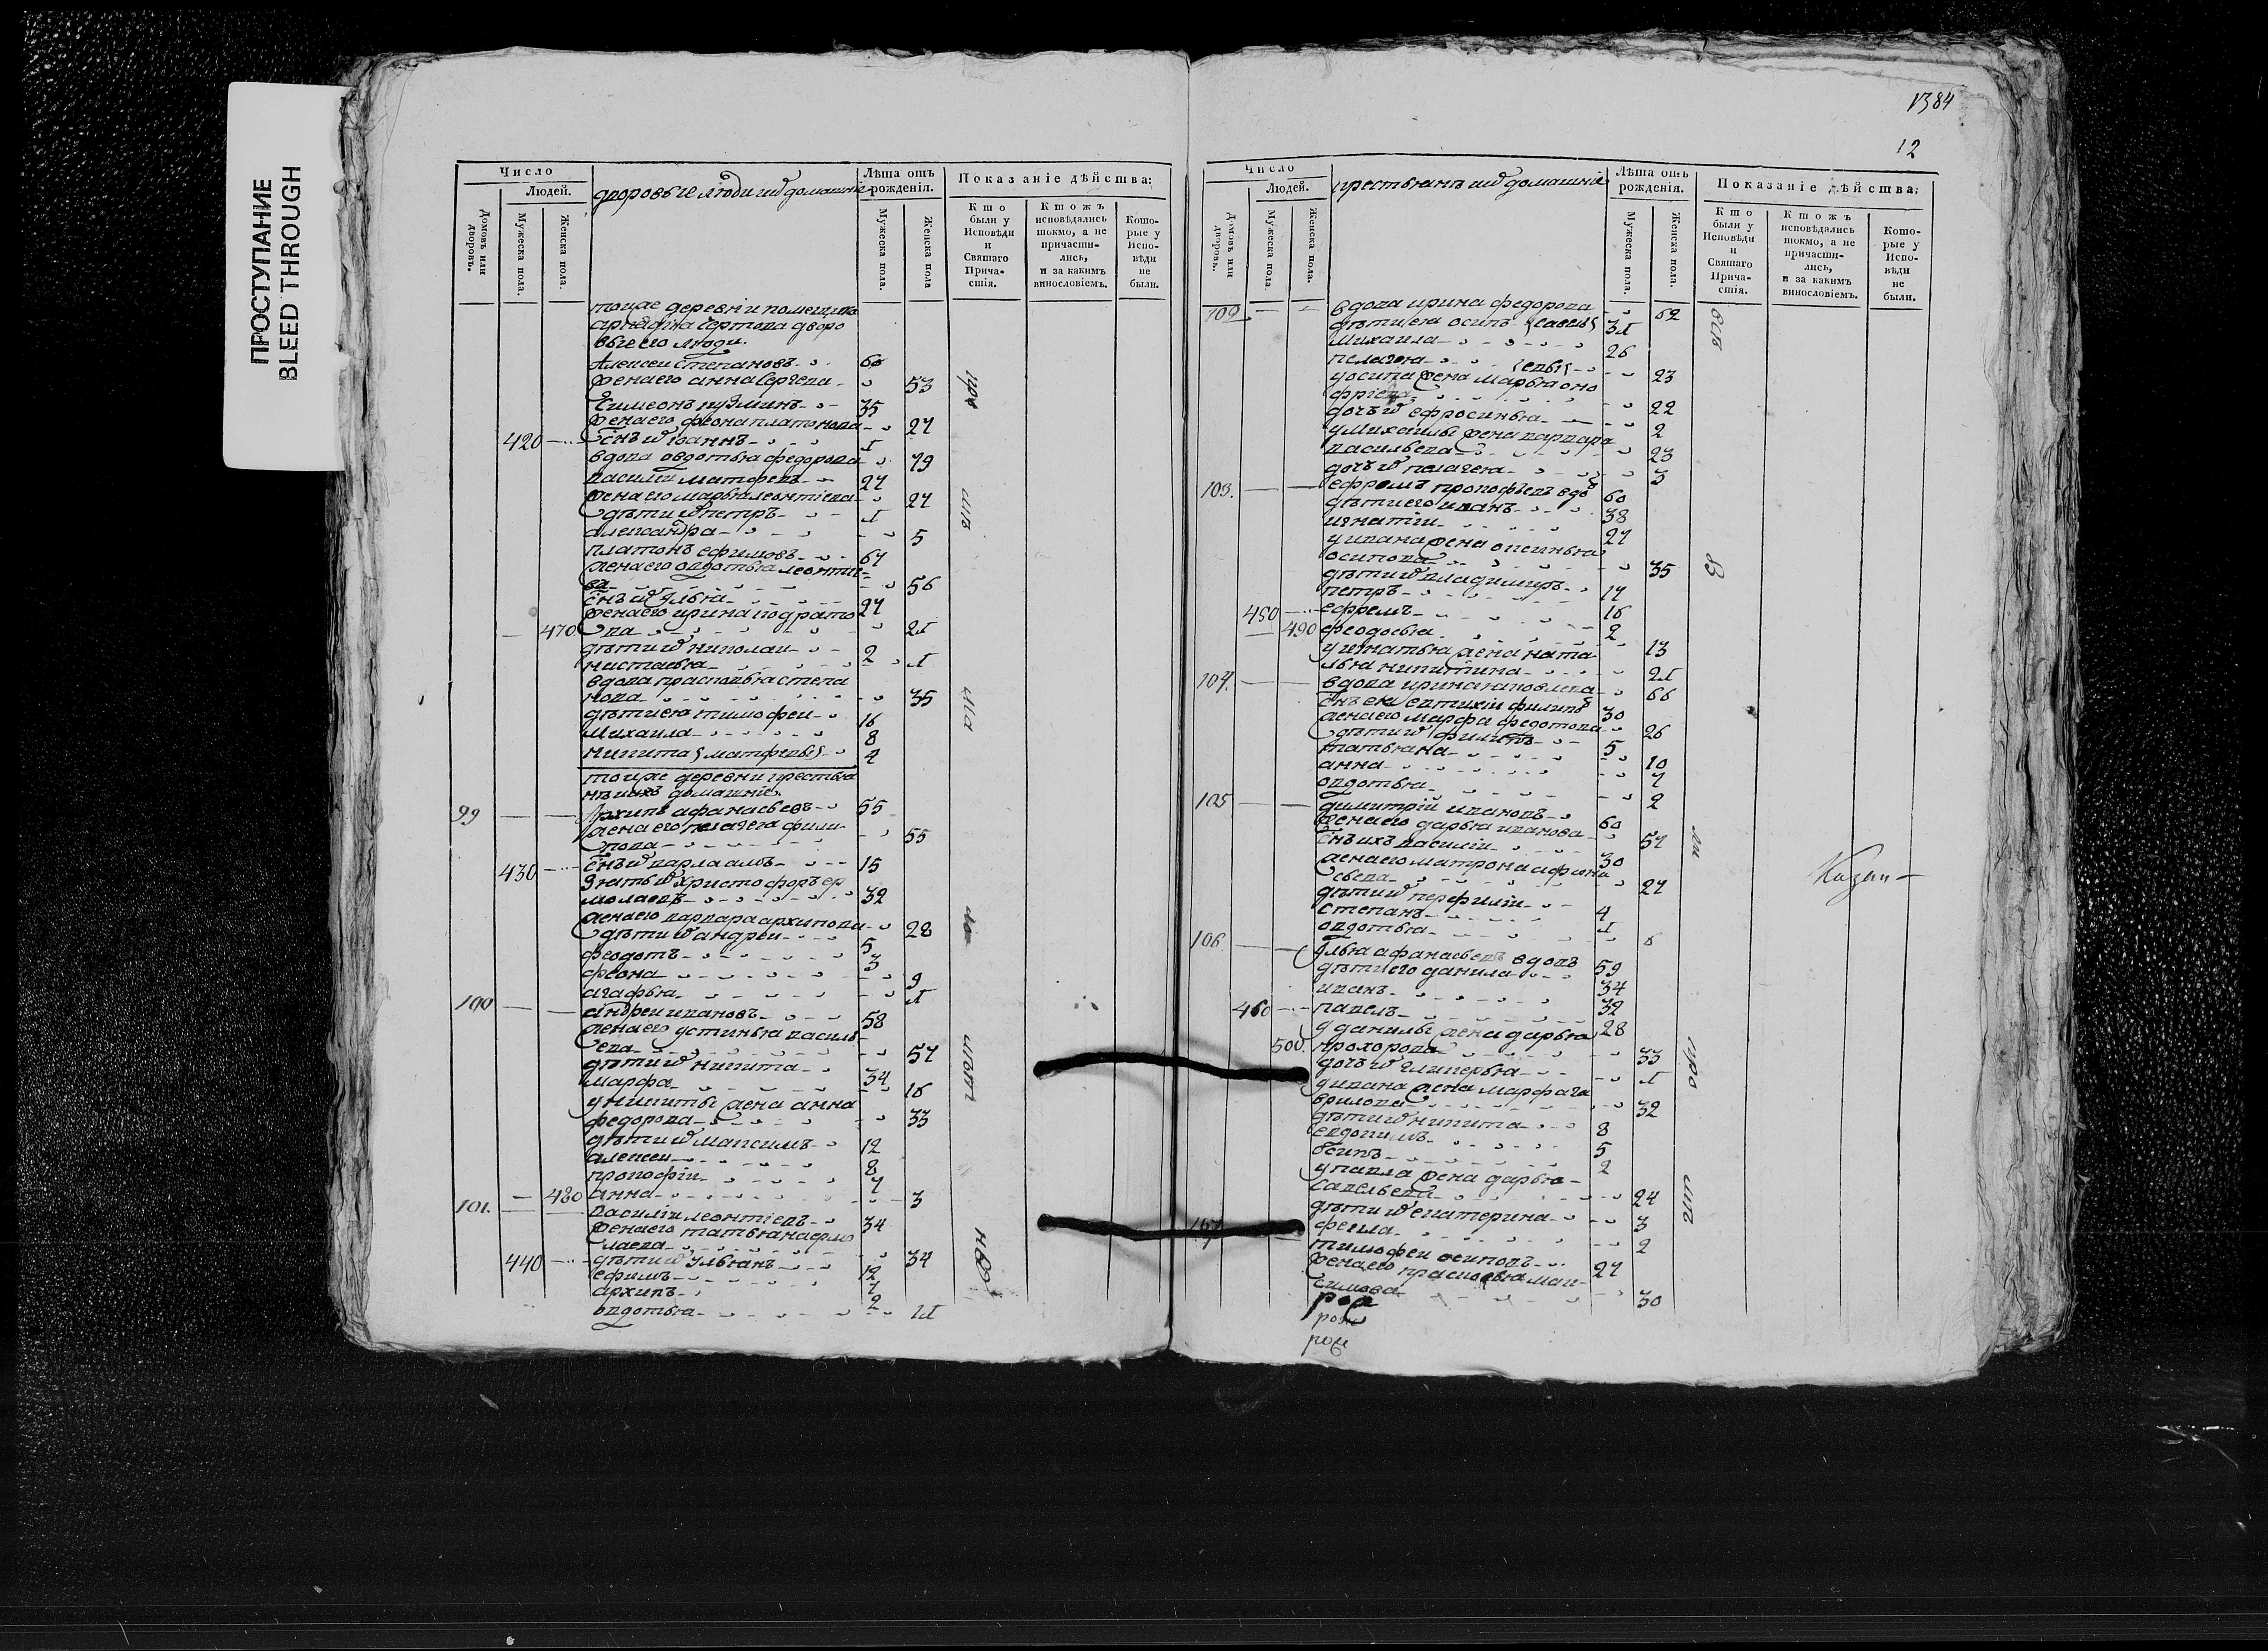 ПРОСТУПАНИЕ
BLEED THROUGH
1384
12
Число
Людей.
Домовъ или дворовъ.
Мужеска пола.
Женска пола.
дворовые люди
Лѣта отъ рожденія.
Мужеска пола.
Женска пола
Показаніе дѣйства:
Кто были у Исповѣди и Святаго Причастія.
Ктожъ исповѣдались токмо, а не причастились, и за какимъ винословіемъ.
Которые у Исповѣди не были.
тоиже деревни помещика
дворо
вые его люди
Алексеи Степановъ 60
жена его анна Сергеева 53
Симеонъ кузминъ 35
жена его феона платонова 27
420 Снъ іоаннъ
вдова овдотья федорова 79
василеи матфеевъ 27
жена его марья леонтіева 27
дѣти петръ
александра 5
платонъ ефимовъ 67
жена его овдотья леонтие
ва 56
Снъ илья 27
жена его ирина кодрато
470 ва
дѣти николаи 2
настасья
вдова прасковья степа
нова 35
дѣти ея тимофеи 16
Михаила 8
никита матфеевы
тоиже деревни крестья
не ихъ домашніе
99 Архипъ афанасьевъ 55
жена его пелагея фили
пова 55
430 Снъ варлаамъ 15
зять христофоръ ер
молаевъ 32
жена его варвара архипова 28
дѣти андреи 5
феодотъ 3
феона 9
агафья
100 андреи ивановъ 58
жена его устинья василь
ева 57
дѣти никита 34
марфа 16
у никиты жена анна
федорова 33
дѣти максимъ 12
алексеи 8
прокофіи 7
480 анна 3
101. василіи леонтіевъ 34
жена его татьяна ермо
лаева 34
440 дѣти ульянъ 12
ефимъ 7
архипъ 2
овдотья
Число
Людей.
Домовъ или дворовъ.
Мужеска пола.
Женска пола.
крестьянъ домашніе
Лѣта отъ рожденія.
Мужеска пола.
Женска пола.
Показаніе дѣйства:
Кто были у Исповѣди и Святаго Причастія.
Ктожъ исповѣдались токмо, а не причастились, и за какимъ винословіемъ.
Которые у Исповѣди не были.
102 вдова ирина федорова 62
дѣти ея осипъ савелье
Михаила 26
пелагея евы 23
у осипа жена марья оно
фріева 22
дочь ефросинья 2
у михаилы жена варвара
васильева 23
дочь пелагея 3
103. ефремъ прокофьевъ вдо 60
дѣти его иванъ 38
игнатіи 27
у ивана жена оксинья
осипова 35
дѣти владимиръ 17
петръ 16
450 ефремъ 2
490 феодосья 13
у игнатья жена ната
лья никитина
104. вдова ирина яковлева 66
Снъ ея евтихіи филипо 30
жена его марфа федотова 26
дѣти филипъ 5
татьяна 10
анна 7
овдотья 2
105 димитріи ивановъ 60
жена его дарья иванова 57
Снъ ихъ василіи 30
жена его матрона афона
сьева 27
дѣти перфиліи 4
степанъ
овдотья 6
106 Илья афанасьевъ вдовъ 59
дѣти его данила 34
иванъ 32
460 павелъ 28
у данилы жена дарья
500. прохорова 33
дочь гликерья
у ивана жена марфа га
врилова 32
дѣти никита 8
евдокимъ 5
осипъ 2
у павла жена дарья
савельева 24
дѣти екатерина 3
фекла 2
107 тимофеи осиповъ 27
жена его прасковья мак
симова 30